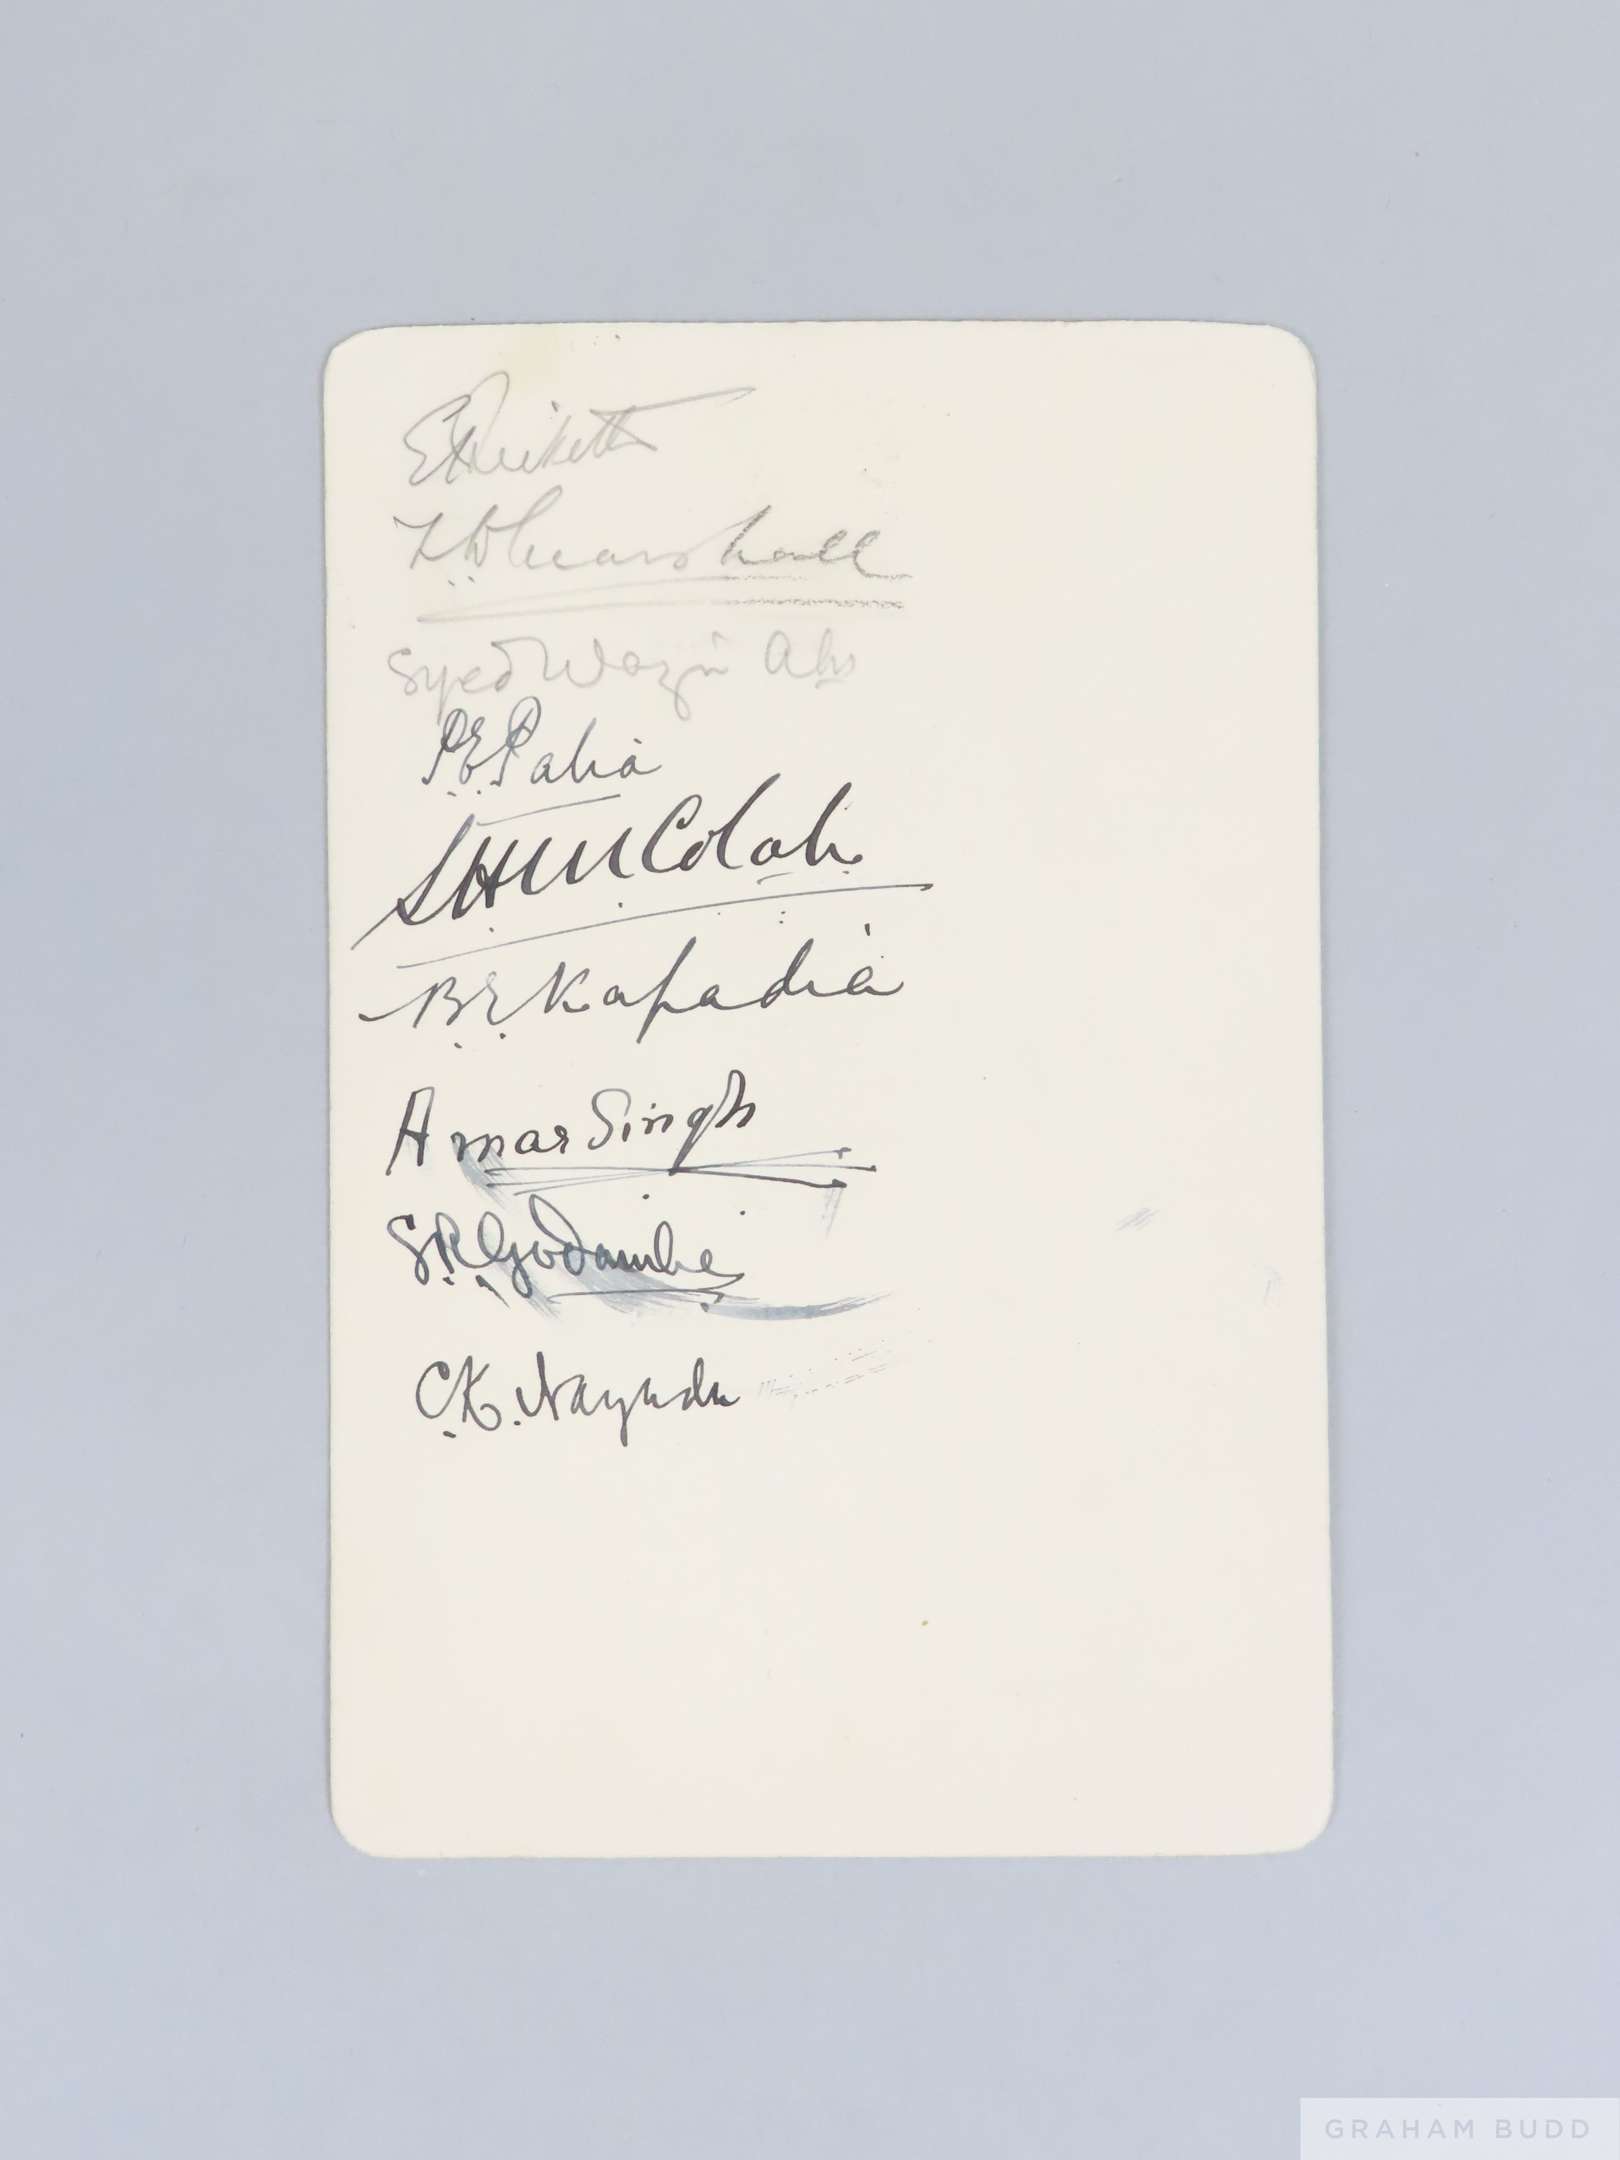 E Ricketts
N.D. Marshall
Syed Wazir Ali
P.E. Palia
S.H.M. Colah.
B.E. Kapadia
Amar Singh
S.R. Godambe
C.K. Nayudu
GRAHAM BUDD